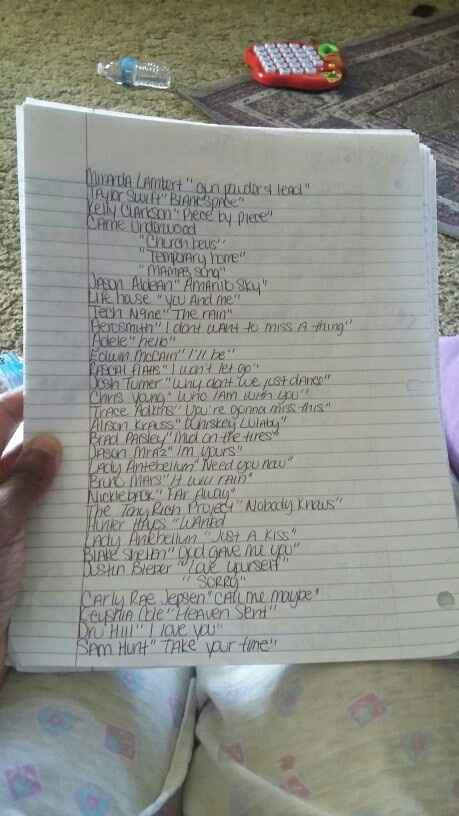 Miranda Lambert "gun powder & lead"
Taylor Swift "Blank space"
Kelly Clarkson "Piece by Piece"
Carrie Underwood
"Church bells"
"Temporary home"
"Mamas song"
Jason Aldean "Amarillo Sky"
Life house "You And me"
Tech N9ne "The rain"
Aerosmith "I dont want to miss A thing"
Adele "hello"
Edwin McCain "I'll be"
Rascal Flatts "I won't let go"
Josh Turner "Why don't we just dance"
Chris Young "Who I Am with you"
Trace Adkins "You're gonna miss this"
Alison Krauss "Whiskey Lulaby"
Brad Paisley "Mud on the tires"
Jason Mraz "I'm yours"
Lady Antebellum "Need you now"
Bruno Mars "It will rain"
Nickleback "Far Away"
The Tony Rich Project "Nobody Knows"
Hunter Hayes "Wanted
Lady Antebellum "Just A Kiss"
Blake Shelton "God gave me you"
Justin Bieber "Love yourself"
"Sorry"
Carly Rae Jepsen "Call me maybe"
Keyshia Cole "Heaven Sent"
Dru Hill "I love you"
Sam Hunt "Take your time"